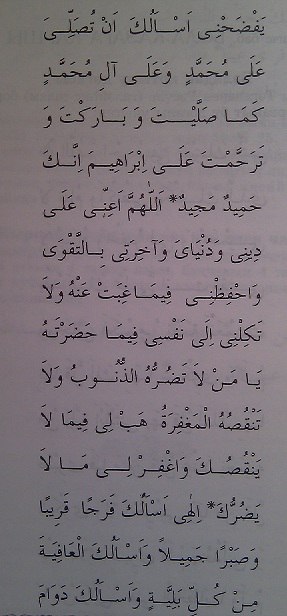 يَفْضَحْنِى اَسْاَلُكَ اَنْ تُصَلِّىَ
عَلَى مُحَمَّدٍ وَعَلَى آلِ مُحَمَّدٍ
كَمَا صَلَّيْتَ وَ بَارَكْتَ وَ
تَرَحَّمْتَ عَلَى اِبْرَاهِيمَ اِنَّكَ
حَمِيدٌ مَجِيدٌ* اَللّٰهُمَّ اَعِنِّى عَلَى
دِينِى وَدُنْيَاىَ وَآخِرَتِى بِالتَّقْوَى
وَاحْفِظْنِى فِيمَا غِبْتَ عَنْهُ وَلاَ
تَكِلْنِى اِلَى نَفْسِى فِيمَا حَضَرْتَهُ
يَا مَنْ لاَ تَضُرُّهُ الذُّنُوبُ وَلاَ
تَنْقُصُهُ الْمَغْفِرَةُ هَبْ لِى فِيمَا لاَ
يَنْقُصُكَ وَاغْفِرْ لِى مَا لاَ
يَضُرُّكَ* اِلٰهِى اَسْاَلُكَ فَرَجًا قَرِيبًا
وَصَبْرًا جَمِيلاً وَاَسْاَلُكَ الْعَافِيَةَ
مِنْ كُلِّ بَلِيَّةٍ وَاَسْاَلُكَ دَوَامَ